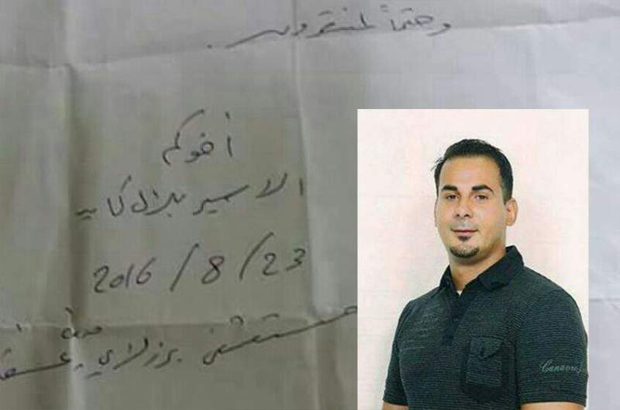 وحتماً لمنتصرون .
أخوكم
الاسير بلال كايد
2016 / 8 / 23
مستشفى برزلاي